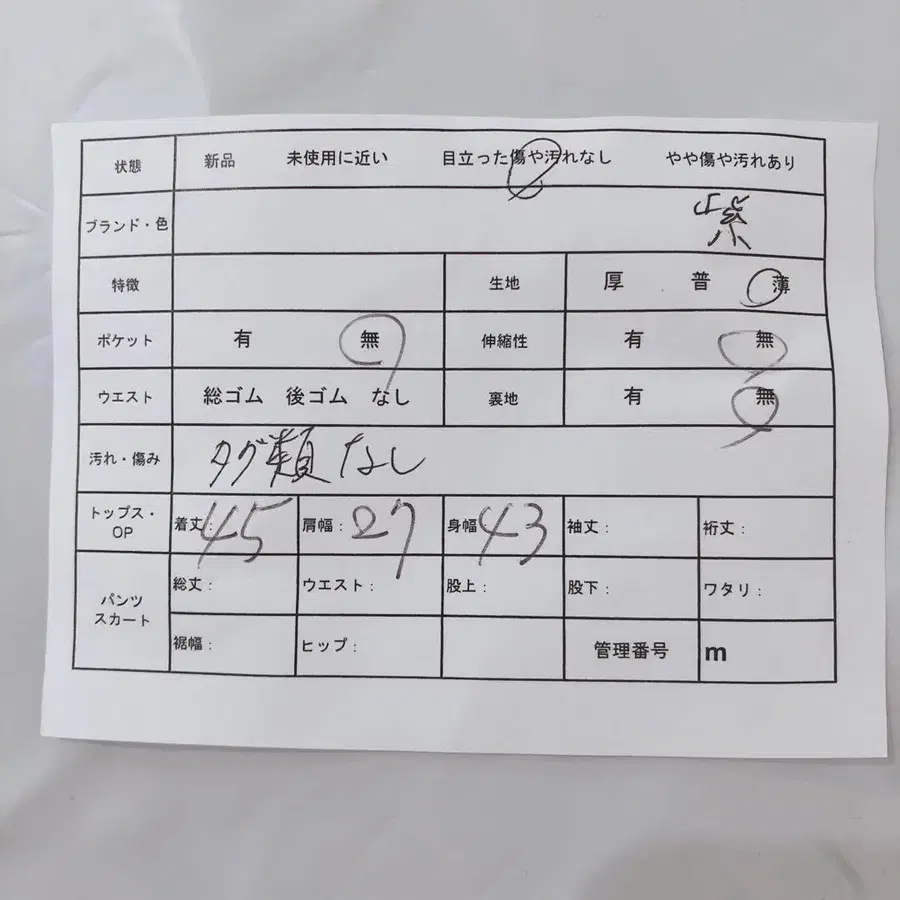 状態 新品 未使用に近い 目立った傷や汚れなし やや傷や汚れあり
ブランド・色 紫
特徴 生地 厚 普 薄
ポケット 有 無 伸縮性 有 無
ウエスト 総ゴム 後ゴム なし 裏地 有 無
汚れ・傷み タグ類なし
トップス・
OP
着丈: 45 肩幅: 27 身幅 43 袖丈: 裄丈:
パンツ
スカート
総丈: ウエスト: 股上: 股下: ワタリ:
裾幅: ヒップ: 管理番号 m